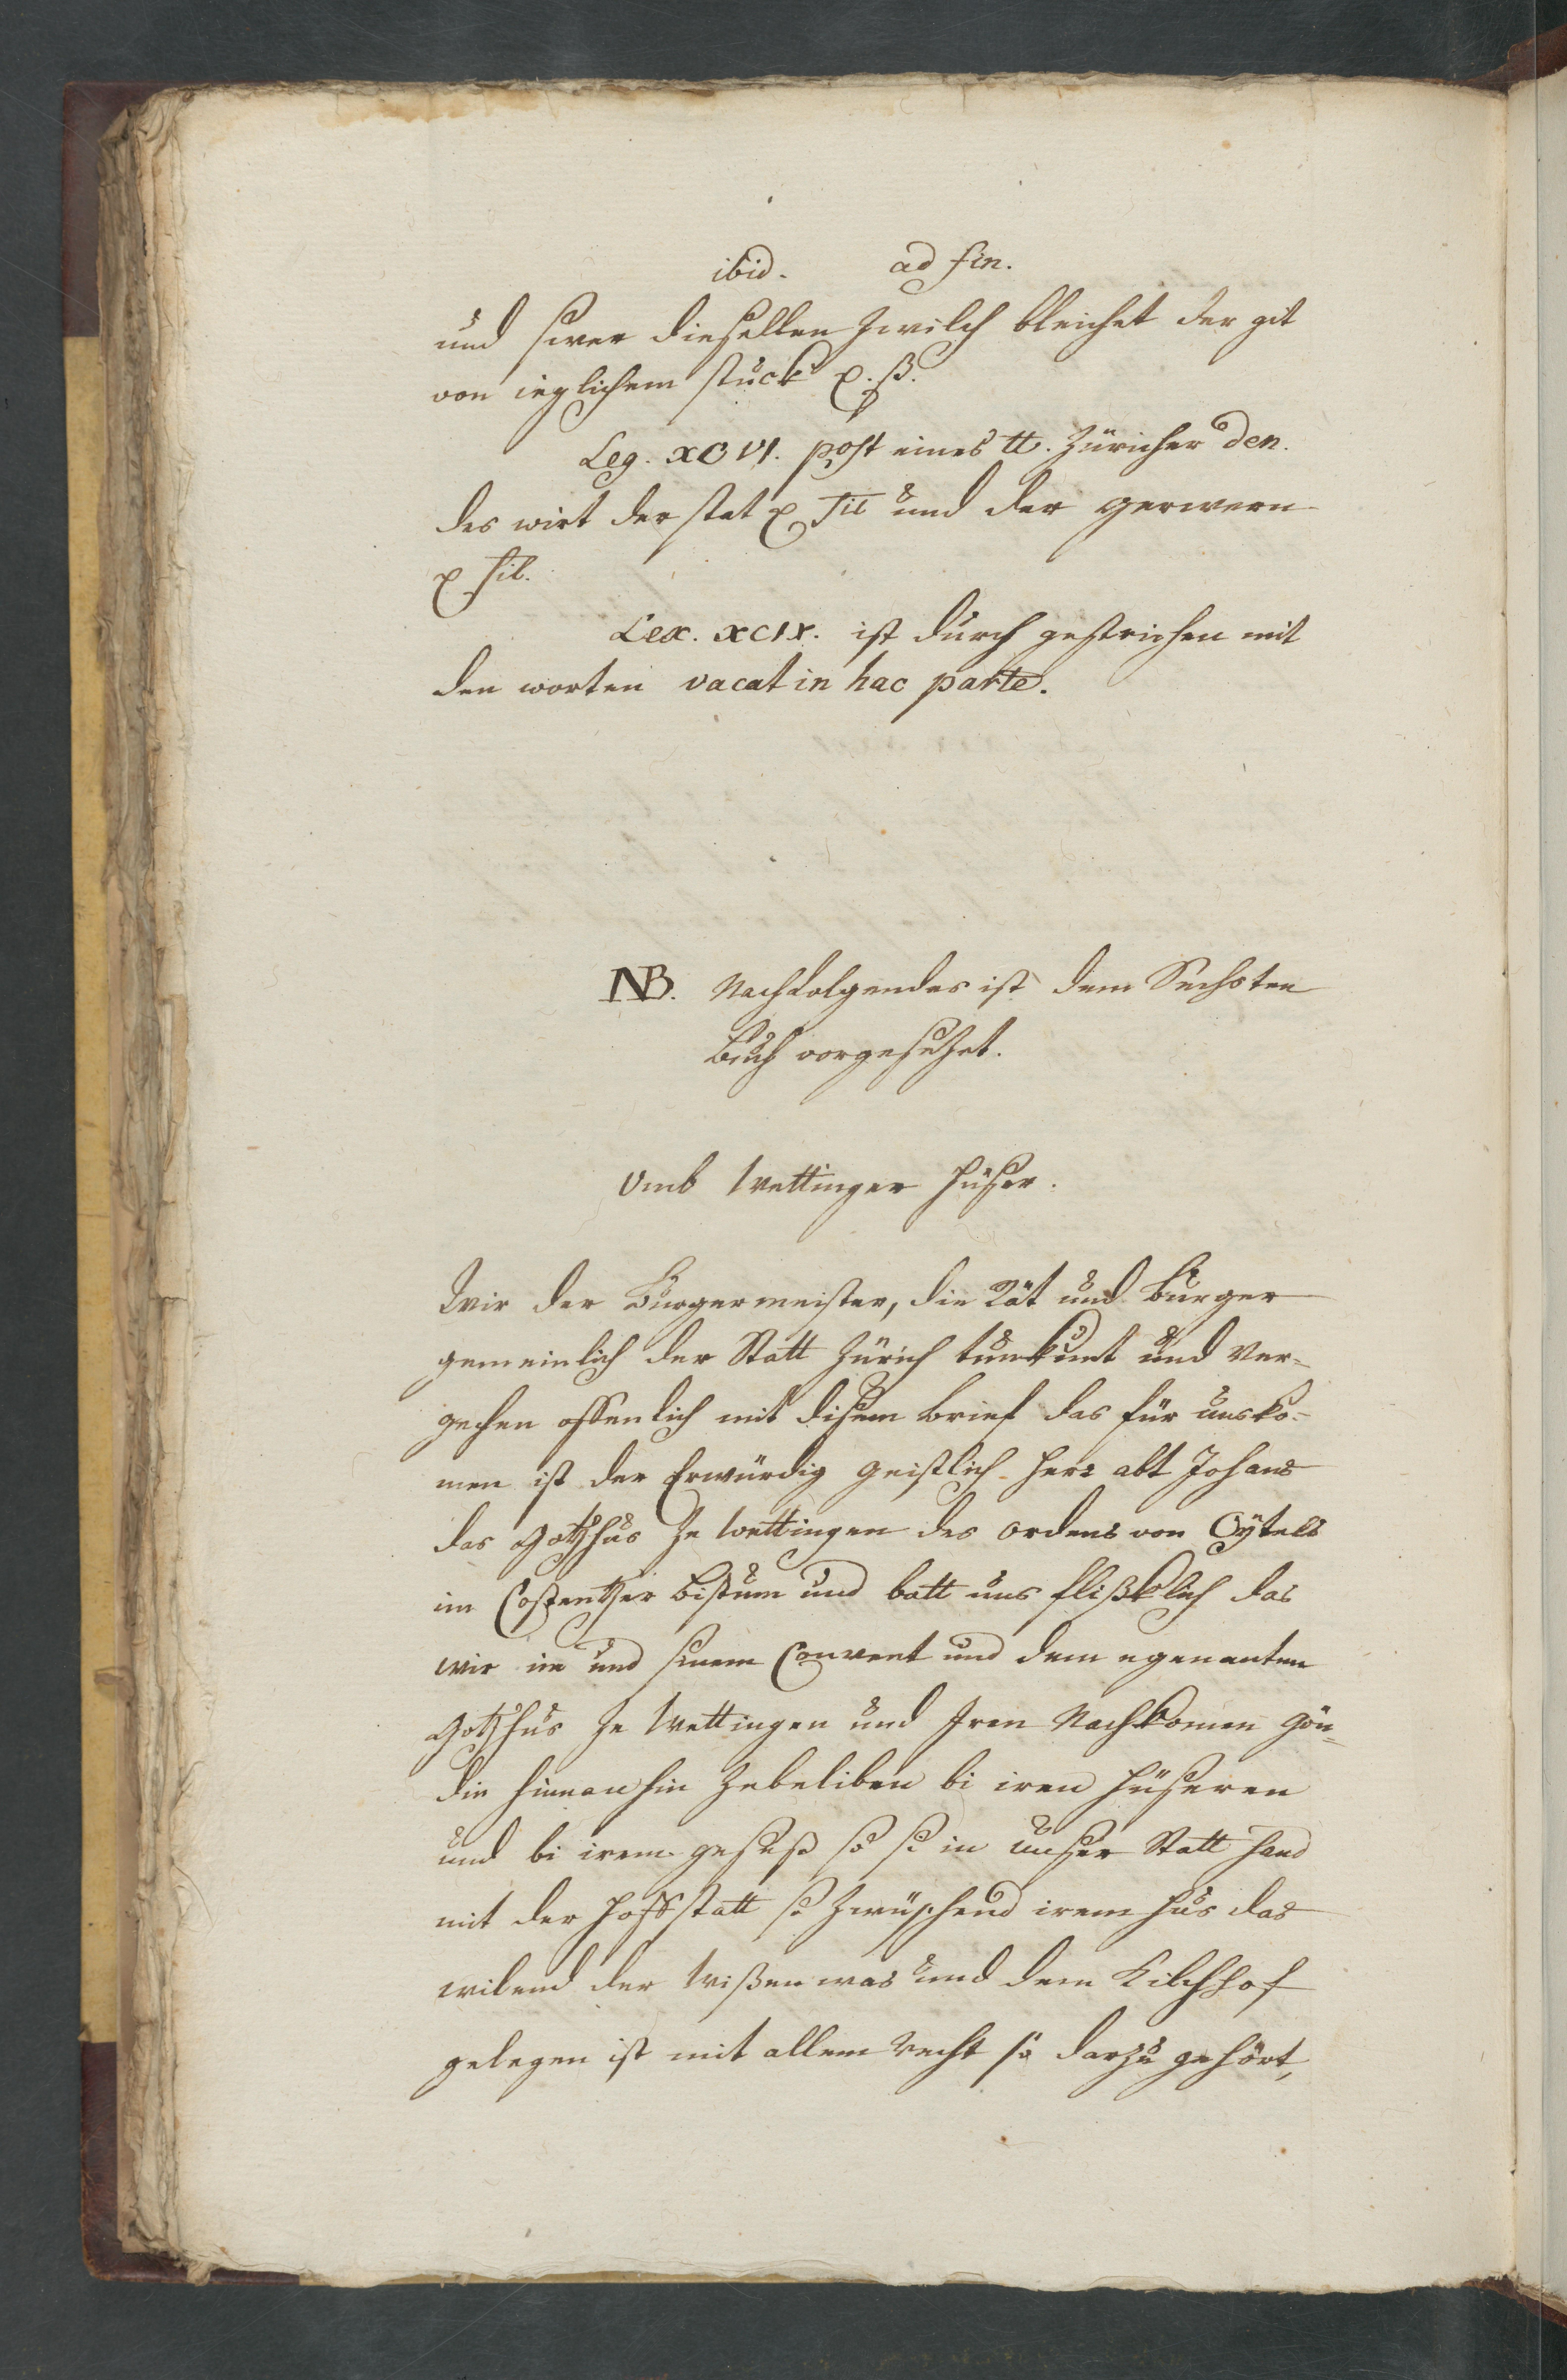 ibid. ad fin.
und swer dieselben Zwilch bleichet der git
von ieglichem stuck x. ß.
Leg. XCVI. post eines tt. Züricher den.
des wirt der stat x sil und der gerwern
x sil.
Lex. XCIX. ist durch gestrichen mit
den worten vacat in hac parte.
NB. Nachfolgendes ist dem Sechsten
Buch vorgesezet.
Umb Wettinger Hüser.
Wir der Burgermeister, die Rät und Burger
gemeinlich der Statt Zürich tun kunt und ver-
gechen offenlich mit disem brief das für uns ko-
men ist der Erwürdig geistlich Herr abt Johans
das Gotzhus ze Wettingen des ordens von Cytels
im Costentzer Bistum und batt uns flißklich das
wir im und sinem Convent und dem egenanten
Gotzhus ze Wettingen und Iren Nachkomen gön-
din hinnanhin zebeliben bi iren Hüseren
und bi irem geseß so si in unser Statt hand
mit der Hoffstatt so zwüschend irem Hus das
wilend der Wißen was und dem Kilchhof
gelegen ist mit allem recht so darzu gehört,